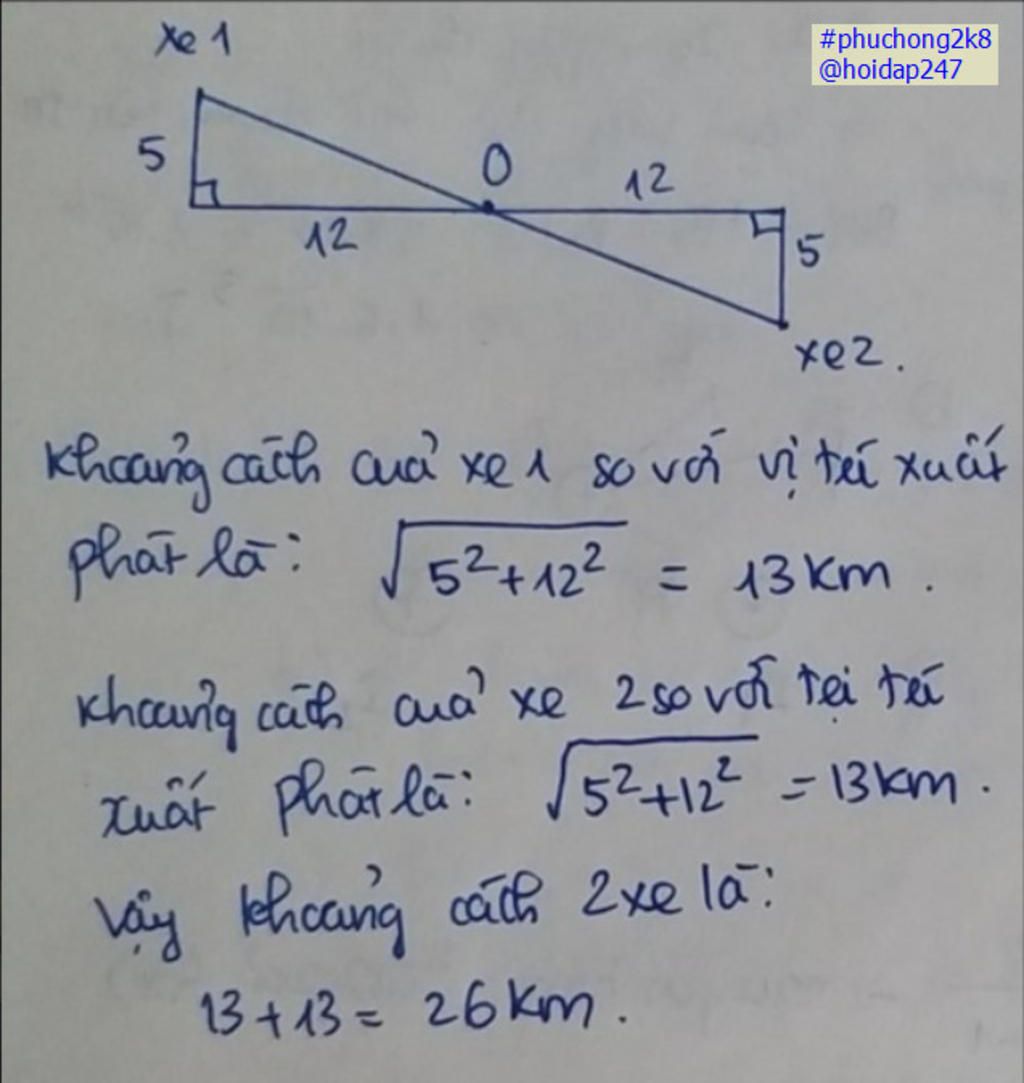 xe 1
#phuchong2k8
@hoidap247
5
O
12
12
5
xe 2.
Khoảng cách của xe 1 so với vị trí xuất
phát là: √5²+12² = 13 km.
Khoảng cách của xe 2 so với tại trí
xuất phát là: √5²+12² = 13 km.
Vậy khoảng cách 2 xe là:
13 + 13 = 26 km.